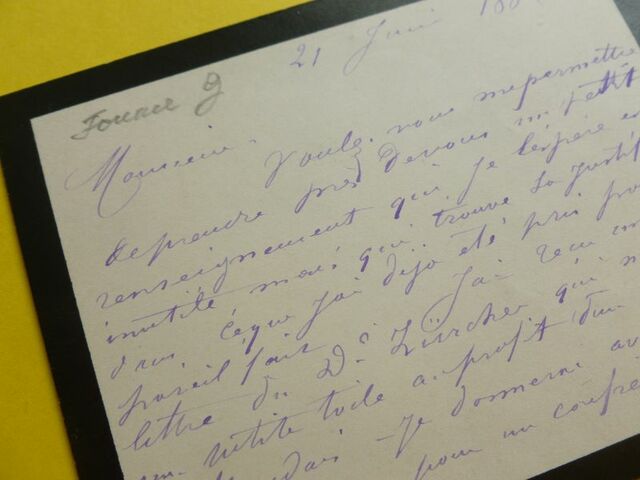 21 Juin 188
Fournier g
Monsieur,
Voulez vous me permettre
de prendre près de vous un petit
renseignement qui je l'espère e
inutile mais qui trouve sa justif
dans ce que j'ai déjà été pris po
pareil fait. J'ai reçu un
lettre du Dr Zürcher qui m
une petite toile au profit d'un
Je donnerai av
pour un confrè